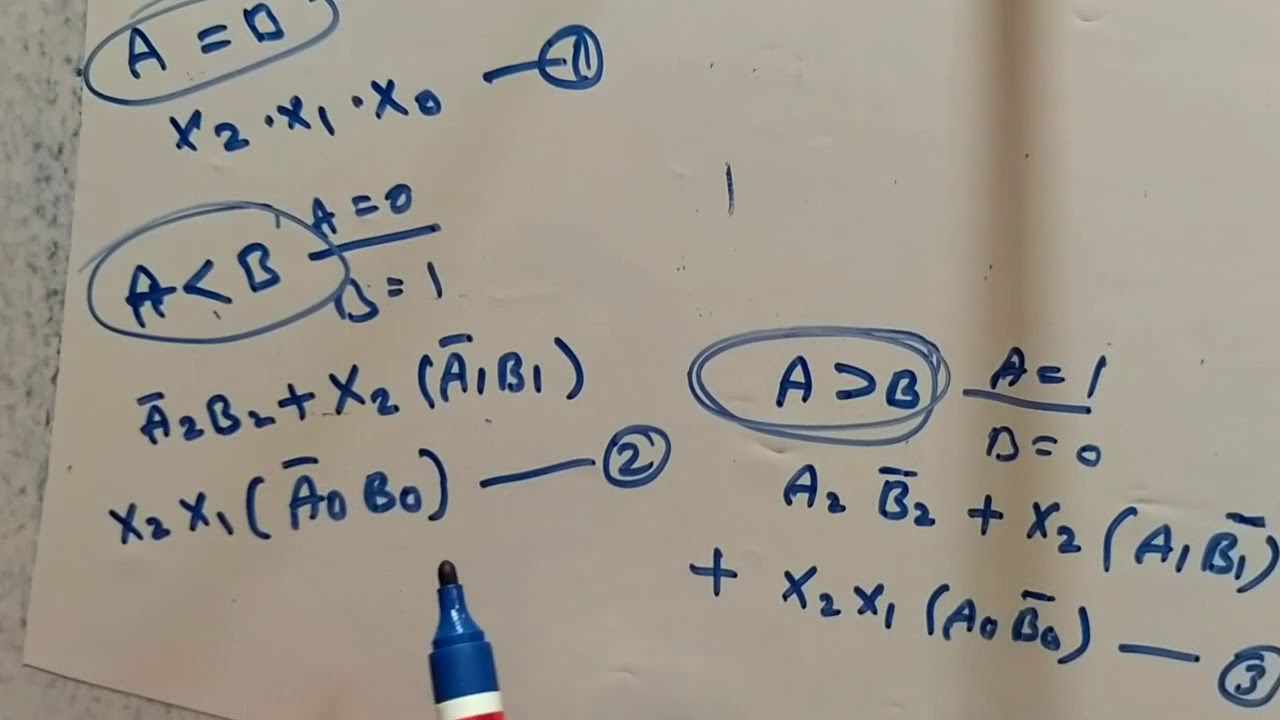 A = B
X₂ . X₁ . X₀ — ①
A < B A = 0
B = 1
A̅₂B₂ + X₂ (A̅₁B₁)
X₂ X₁ (A̅₀ B₀) — ②
A > B A = 1
B = 0
A₂ B̅₂ + X₂ (A₁ B̅₁)
+ X₂ X₁ (A₀ B̅₀) — ③